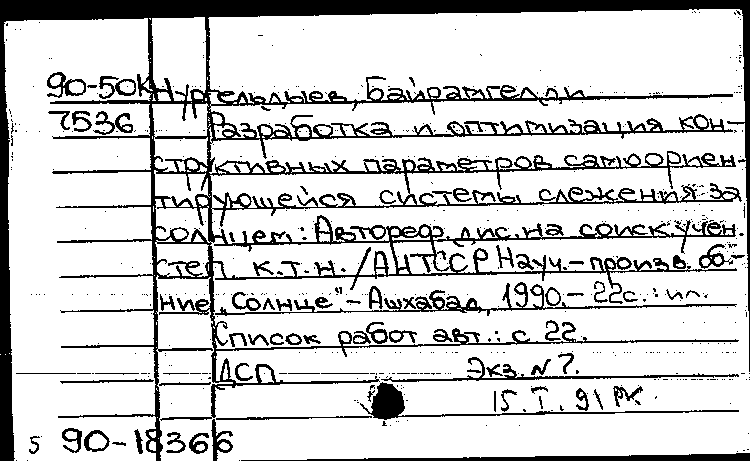 90-50К Нургельдыев, Байрамгелди
7536 Разработка и оптимизация кон-
структивных параметров самоориен-
тирующейся системы слежения за
солнцем: Автореф. дис. на соиск. учен.
степ. к.т.н. / АНТССР Науч.-произв. об-
ние „Солнце".- Ашхабад, 1990.- 22с.: ил.
Список работ авт.: с 22.
ДСП. Экз. N 7.
15. I. 91 РК.
5 90-18366